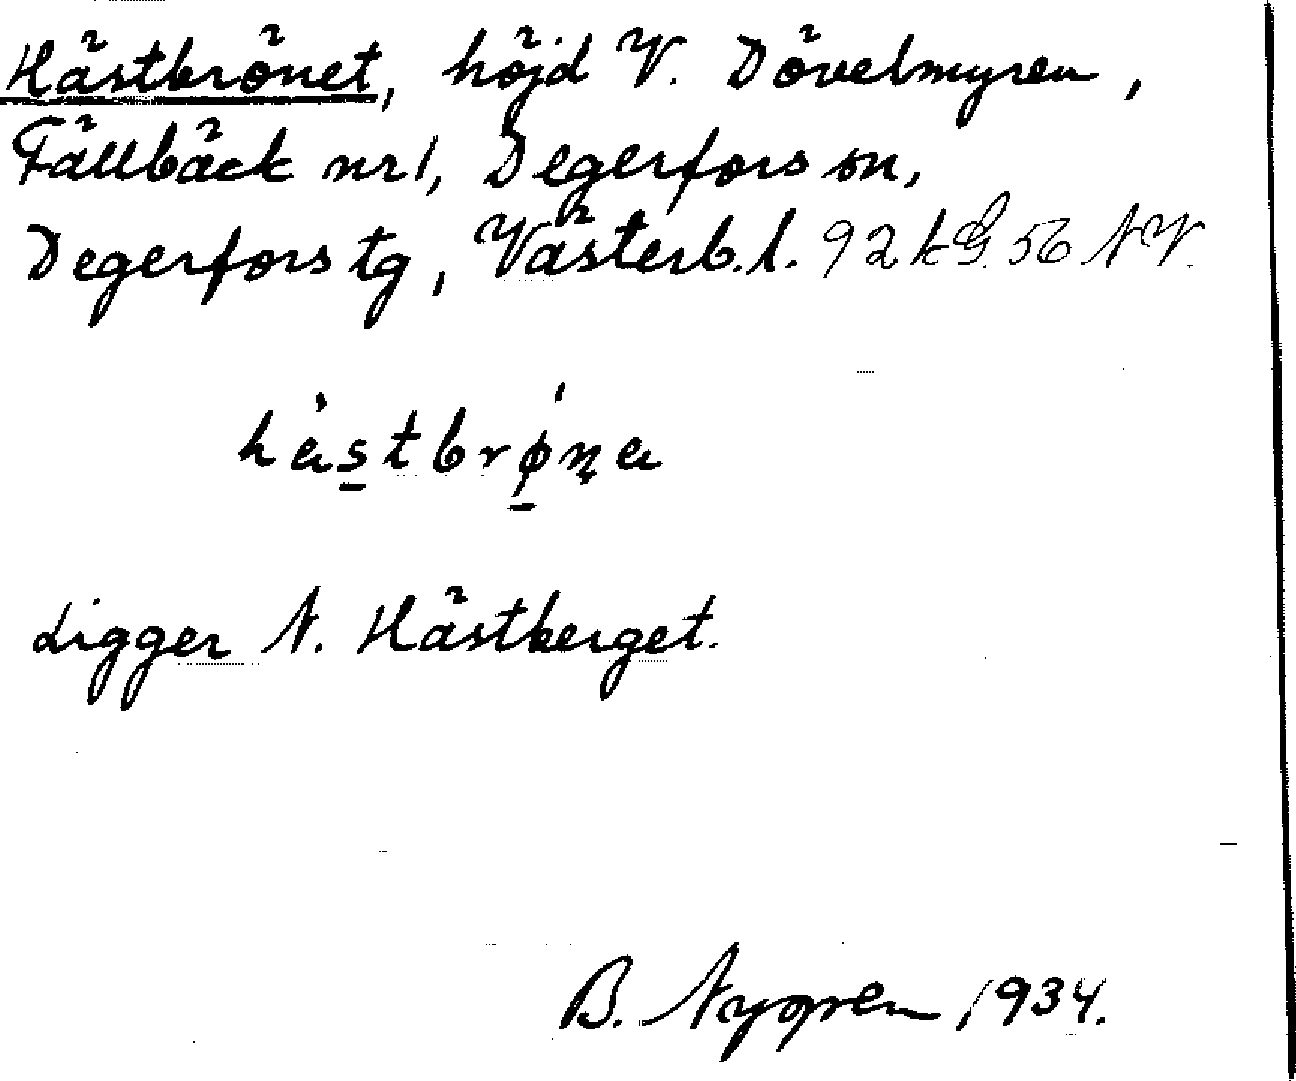 Hästbrönet, höjd V. Dövelmyren,
Fällbäck nr 1, Degerfors sn,
Degerfors tg, Västerb. l. 92 kG. 56 NV.
hàstbrǿṇa
Ligger N. Hästberget.
B. Nygren 1934.